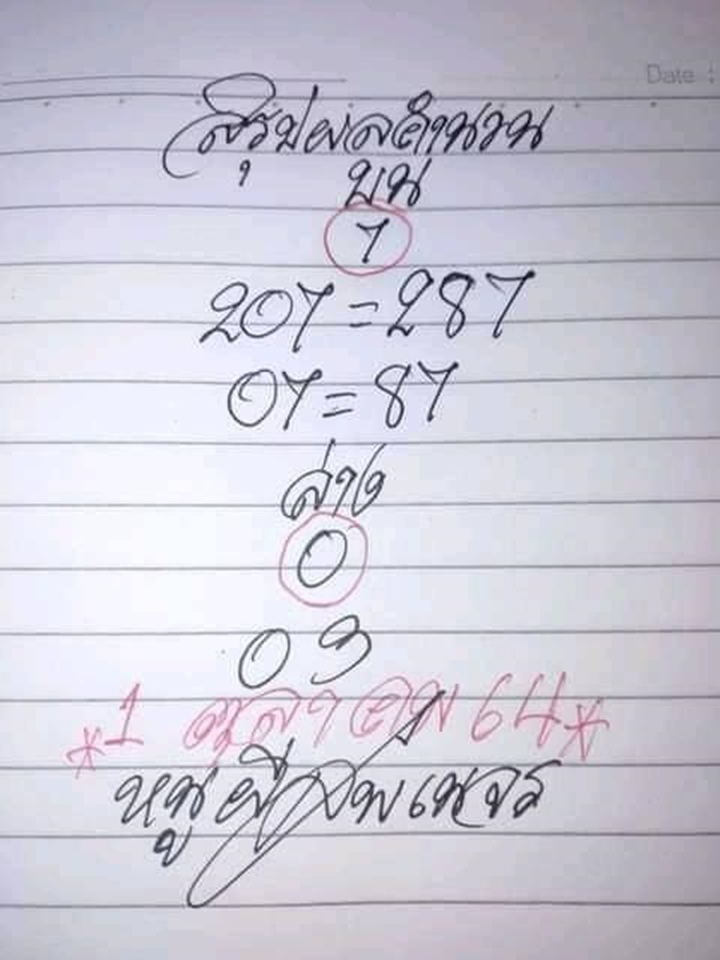 Date :
สรุปผลคำนวน
บน
7
207 = 287
07 = 87
ล่าง
0
03
*1 ตุลาคม 64*
หนูผีสัมเนจร